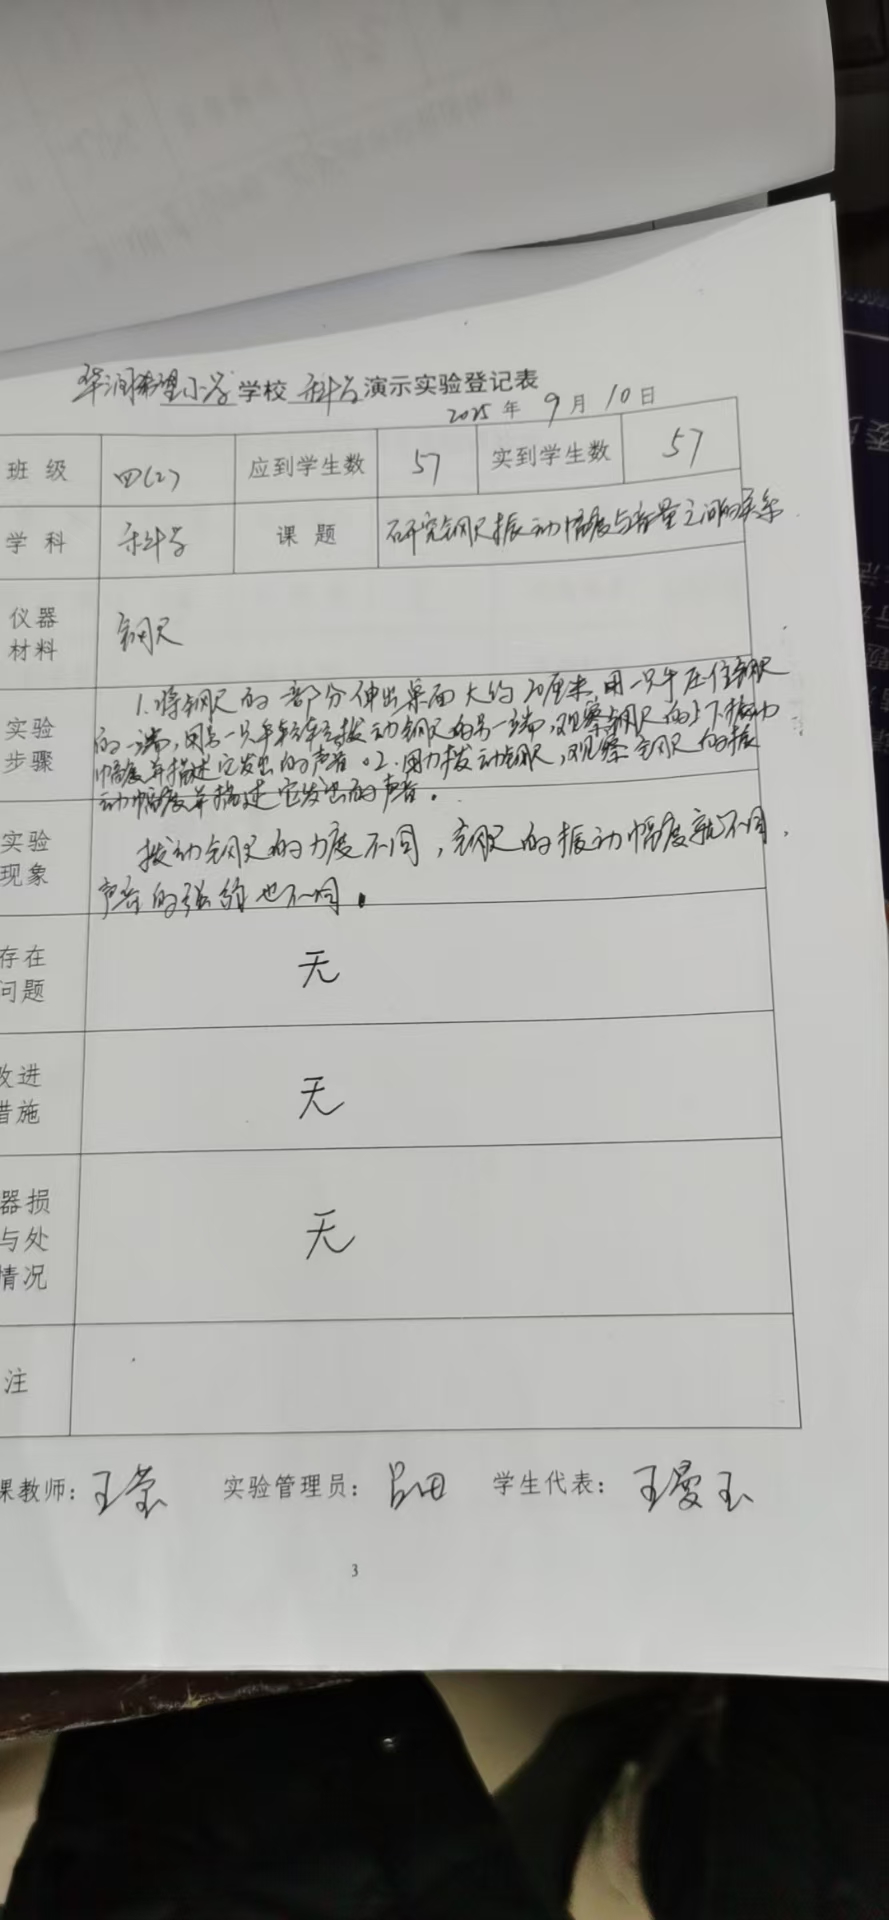 华润希望小学学校 科学 演示实验登记表
2025年 9月 10日
班 级 四(2) 应到学生数 57 实到学生数 57
学 科 科学 课 题 研究钢尺振动幅度与音量之间的关系
仪器
材料 钢尺
实验
步骤
1.将钢尺的一部分伸出桌面大约10厘米,用一只手压住钢尺
的一端,用另一只手轻轻拨动钢尺的另一端,观察钢尺的上下振动
幅度并描述它发出的声音。2.用力拨动钢尺,观察钢尺的振
动幅度并描述它发出的声音。
实验
现象
拨动钢尺的力度不同,钢尺的振动幅度就不同,
声音的强弱也不同。
存在
问题 无
改进
措施 无
器损
与处
情况 无
注
课教师: 王莹 实验管理员: 吕田 学生代表: 王曼玉
3